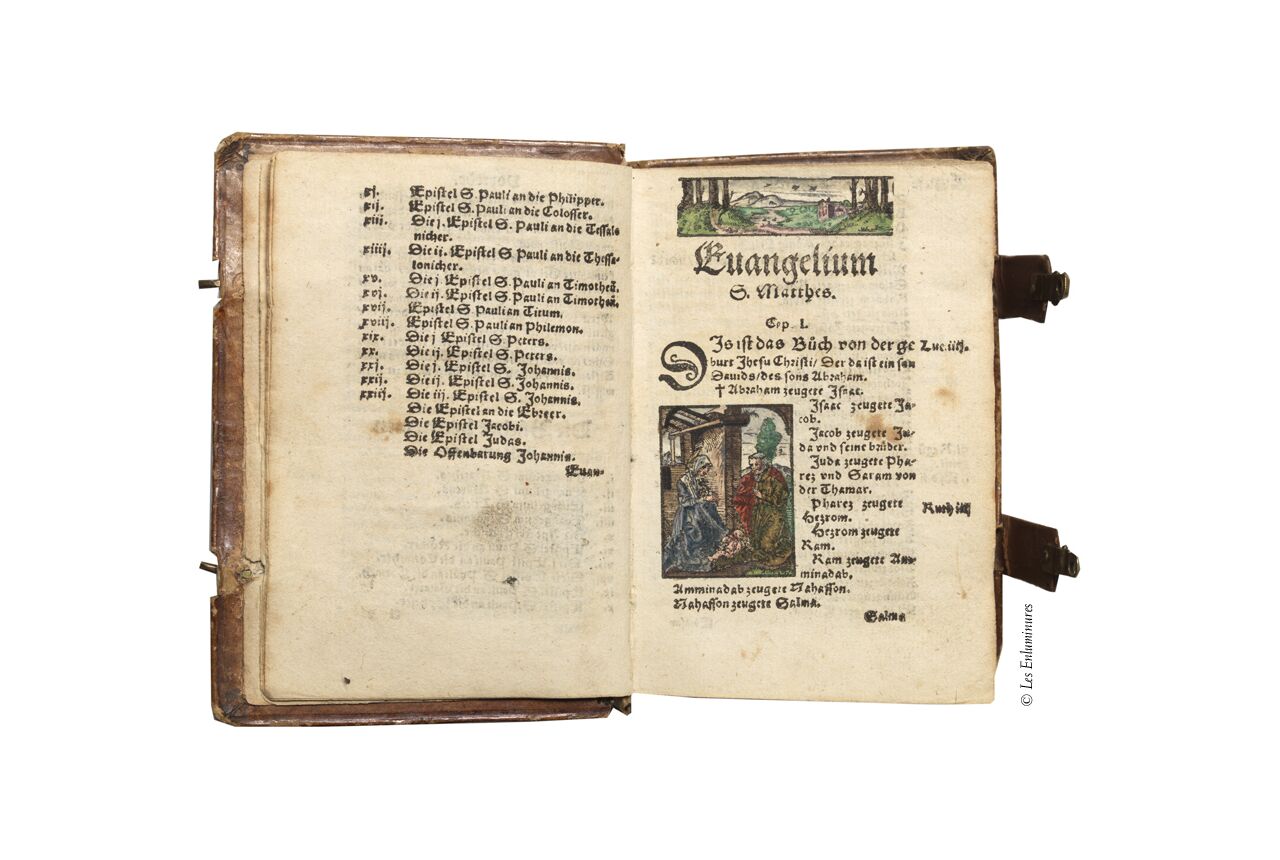 xj. Epistel S. Pauli an die Philipper.
xij. Epistel S. Pauli an die Colosser.
xiii. Die j. Epistel S. Pauli an die Tessalo
nicher.
xiiij. Die ij. Epistel S. Pauli an die Thessa-
lonicher.
xv. Die j. Epistel S. Pauli an Timotheū.
xvj. Die ij. Epistel S. Pauli an Timotheū.
xvij. Epistel S. Pauli an Titum.
xviij. Epistel S. Pauli an Philemon.
xix. Die j Epistel S. Peters.
xx. Die ij. Epistel S. Peters.
xxj. Die j. Epistel S. Johannis.
xxij. Die ij. Epistel S. Johannis.
xxiij. Die iij. Epistel S. Johannis.
Die Epistel an die Ebreer.
Die Epistel Jacobi.
Die Epistel Judas.
Die Offenbarung Johannis.
Euan-
Euangelium
S. Matthes.
Cap. I.
DIs ist das Büch von der ge Luc. iij.
burt Jhesu Christi / Der da ist ein son
Dauids / des sons Abraham.
† Abraham zeugete Isaac.
Isaac zeugete Ja-
cob.
Jacob zeugete Ju-
da vnd seine brüder.
Juda zeugete Pha-
rez vnd Saram von
der Thamar.
Pharez zeugete Ruth iiij
Hezrom.
Hezrom zeugete
Ram.
Ram zeugete Am-
minadab.
Amminadab zeugete Nahasson.
Nahasson zeugete Salma.
Salma
© Les Enluminures